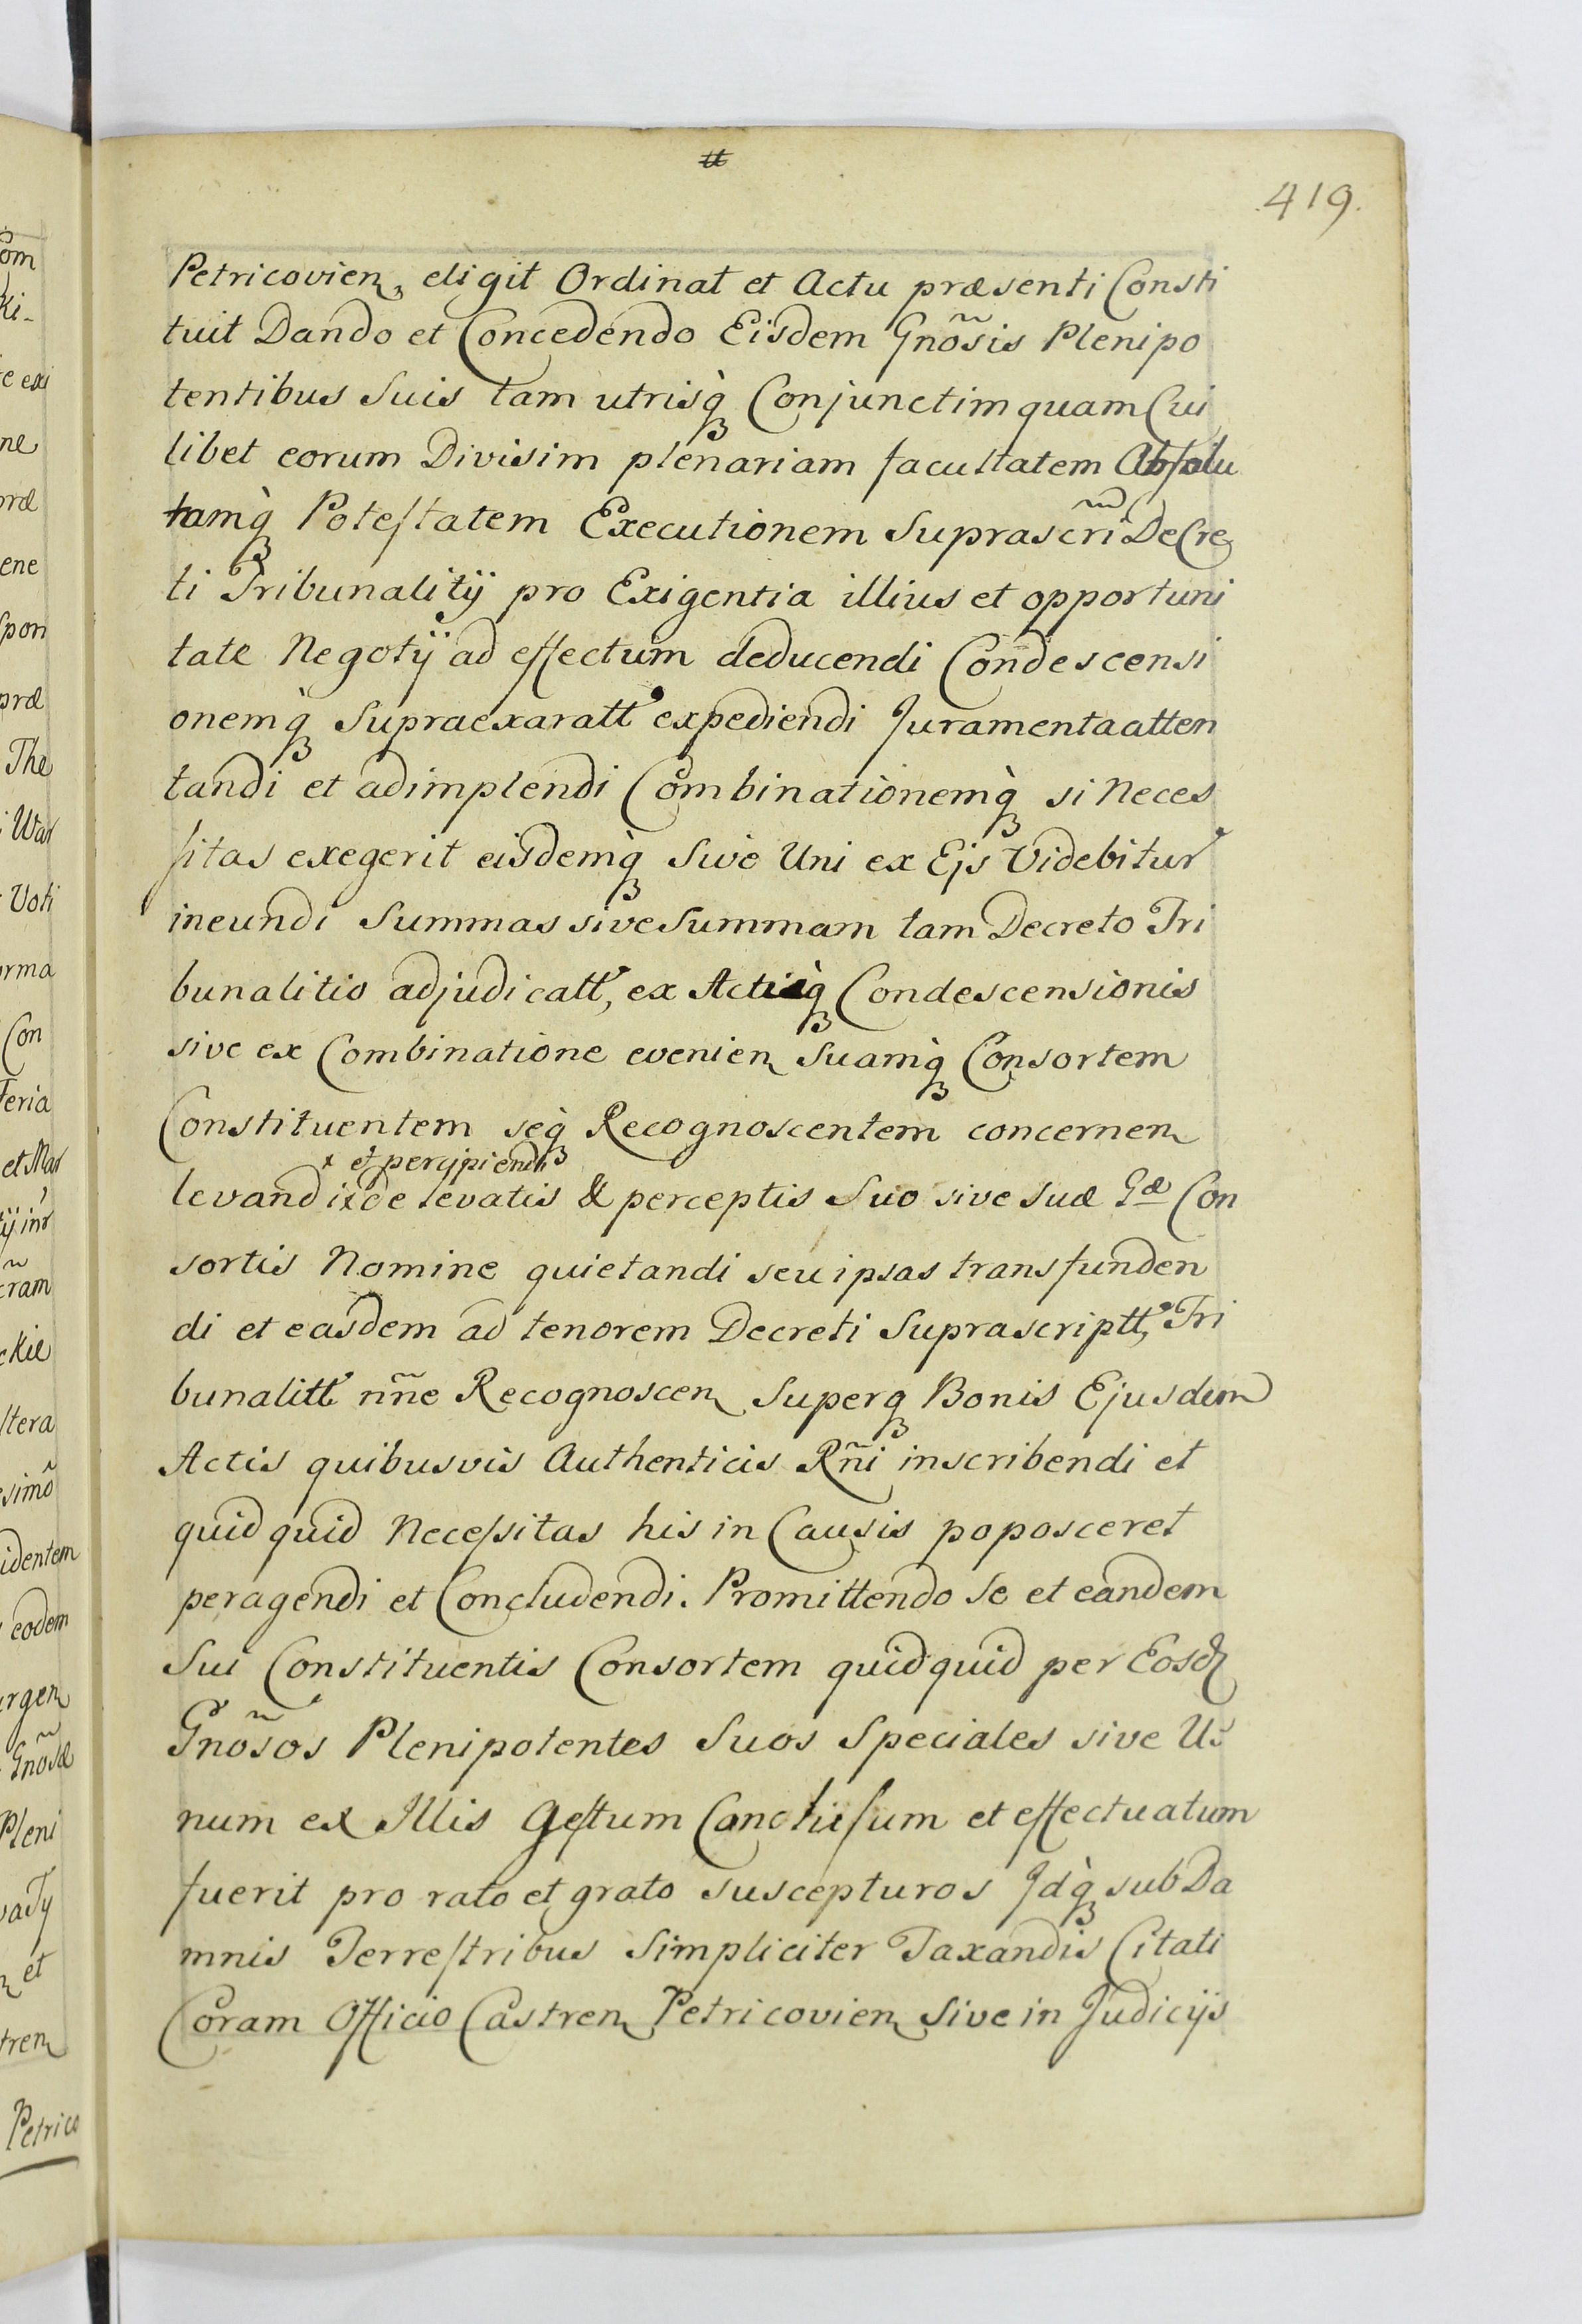 419.
Petricovien, eligit Ordinat et Actu præsenti Consti
tuit Dando et Concedendo Eisdem Gnõsis Plenipo
tentibus Suis tam utrisq̀ Conjunctim quam Cui
libet eorum Divisim plenariam facultatem Absolu
tamq̀ Potestatem Executionem Suprascri Decre
ti Tribunalitij pro Exigentia illius et opportuni
tate Negotij ad effectum deducendi Condescensi
onemq̀ Supraexaratt expediendi Juramenta atten
tandi et adimplendi Combinationemq̀ si Neces
sitas exegerit eisdemq̀ Sive Uni ex Ejs Videbitur
ineundi Summas sive Summam tam Decreto Tri
bunalitio adjudicatt, ex Actisq̀ Condescensionis
sive ex Combinatione evenien Suamq̀ Consortem
Constituentem seq̀ Recognoscentem concernen
x et percipiendi
levandi x de levatis & perceptis Suo sive Suæ Gæ Con
sortis Nomine quietandi seu ipsas transfunden
di et easdem ad tenorem Decreti Suprascriptt, Tri
bunalitt nñe Recognoscen Superq Bonis Ejusdem
Actis quibusvis Authenticis Rñi inscribendi et
quidquid Necessitas his in Causis poposceret
peragendi et Concludendi. Promittendo Se et eandem
Sui Constituentis Consortem quidquid per Eosd
Gnõsos Plenipotentes Suos Speciales sive U
num ex Illis Gestum Conclusum et effectuatum
fuerit pro rato et grato suscepturos Idq̀ sub Da
mnis Terrestribus Simpliciter Taxandis Citati
Coram Officio Castren Petricovien Sive in Judicijs